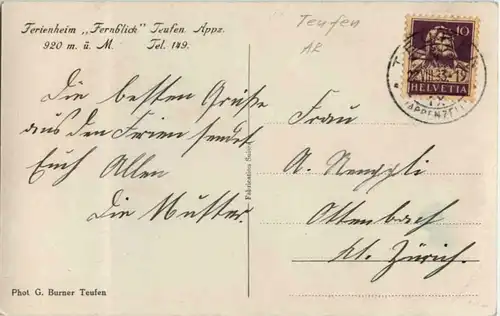 Ferienheim „Fernblick" Teufen, Appz.
920 m. ü. M. Tel. 149.
Teufen
AR
10
HELVETIA
(APPENZELL)
Die besten Grüße
aus den Ferien sendet
Euch Allen
Die Mutter.
Frau
A.
Ottenbach
Kt. Zürich.
Fabrication Suisse
Phot G. Burner Teufen